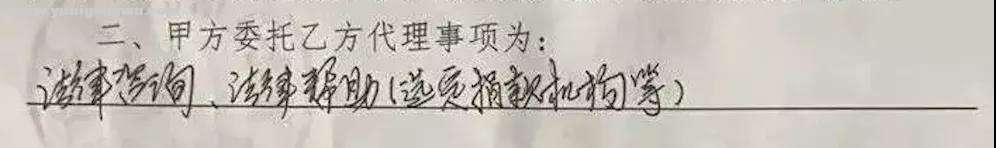 二、甲方委托乙方代理事项为：
法律咨询、法律帮助（选定捐款机构等）